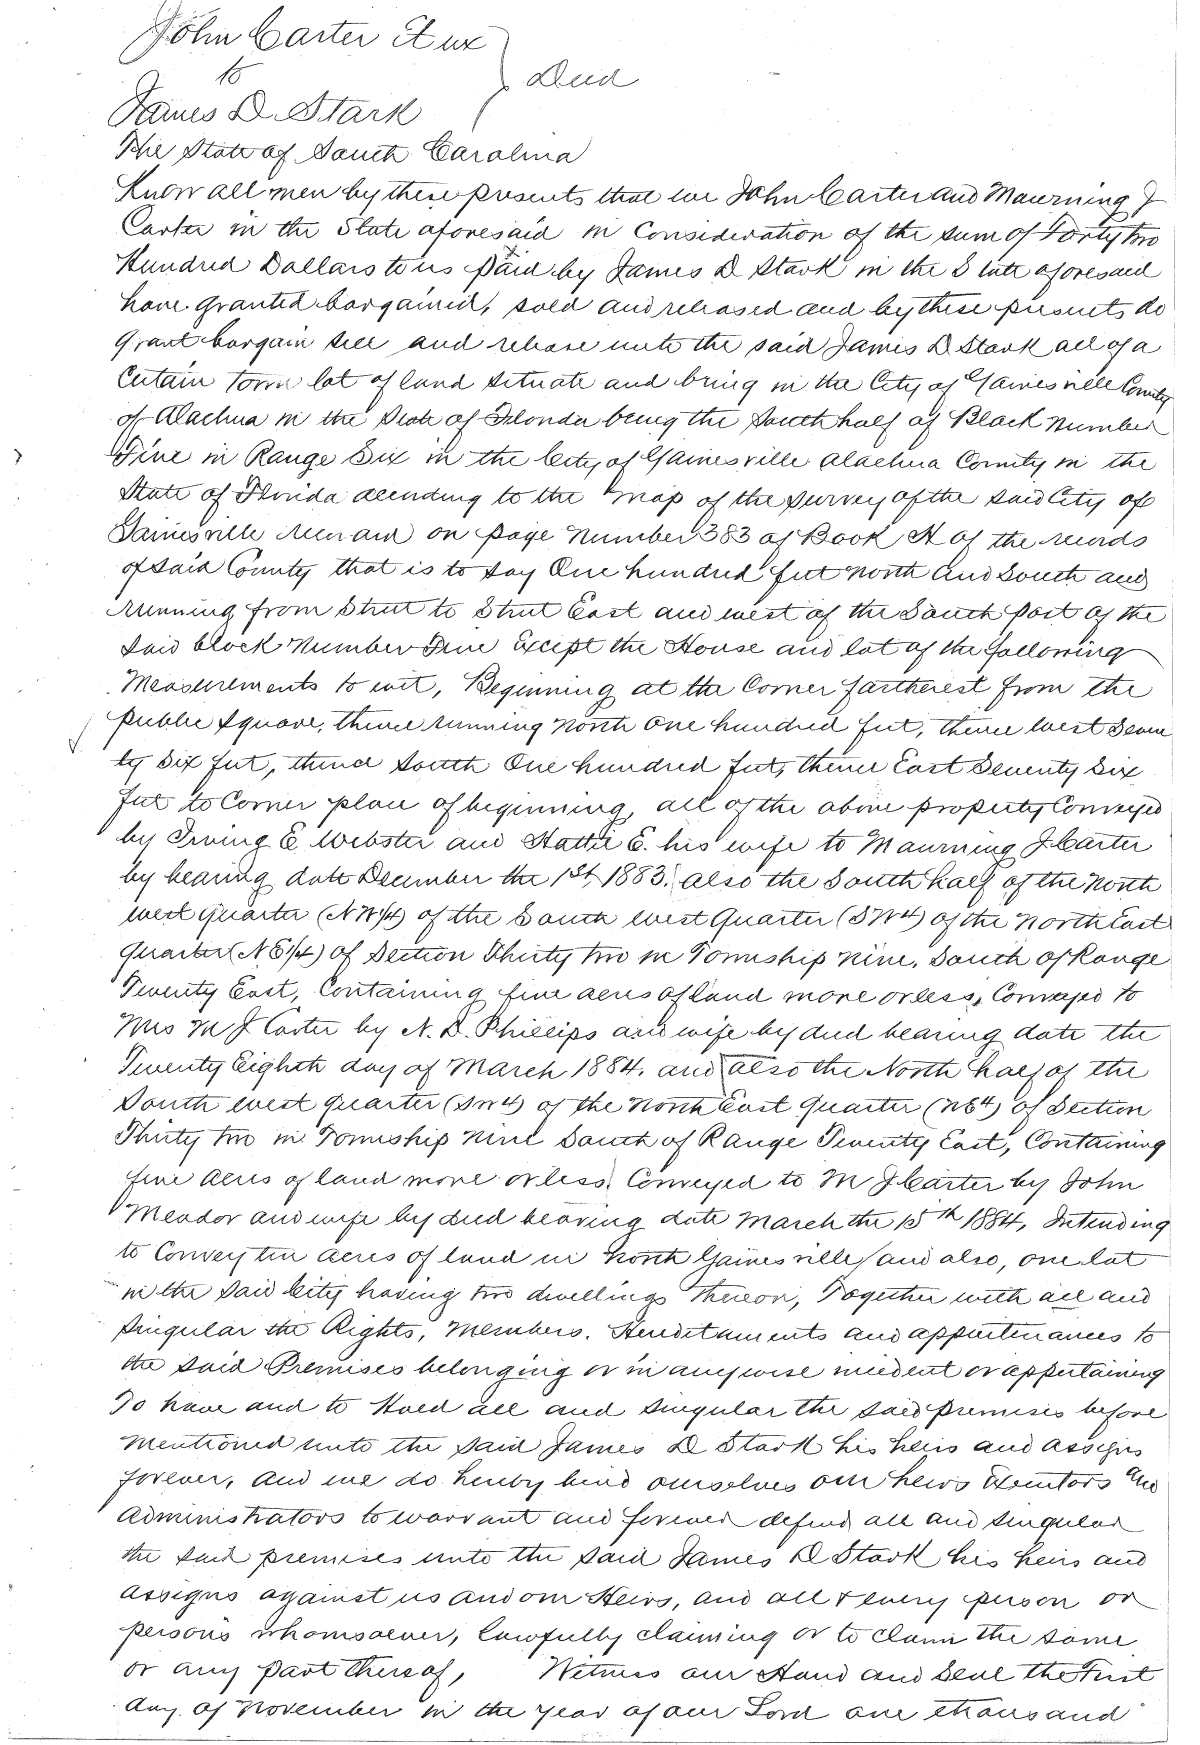 John Carter Et ux
to
Deed
James D. Stark
The State of South Carolina
Know all men by these presents that we John Carter and Mawrning J
Carter in the State aforesaid in Consideration of the sum of Forty two
Hundred Dollars to us paid by James D Stark in the State aforesaid
have granted bargained, sold and released and by these presents do
grant bargain sell and release unto the said James D Stark all of a
Certain town lot of land situate and being in the City of Gainesville County
of Alachua in the State of Florida being the South half of Block Number
Five in Range Six in the City of Gainesville Alachua County in the
State of Florida according to the map of the survey of the said City of
Gainesville on page Number 383 of Book H of the records
of said County that is to say One hundred feet North and South and
running from Street to Street East and west of the South part of the
said block Number Five Except the House and lot of the following
Measurements to wit, Beginning at the Corner fartherest from the
public square, thence running North One hundred feet, thence West Seven
ty Six feet, thence South One hundred feet, thence East Seventy Six
feet to Corner place of beginning, all of the above property Conveyed
by Irving E. Webster and Hattie E. his wife to Mawrning J. Carter
by bearing date December the 1st, 1883. also the South half of the North
west quarter (NW1/4) of the South west Quarter (SW4) of the North East
quarter (NE1/4) of Section Thirty two in Township nine, South of Range
Twenty East, Containing five acres of land more or less, Conveyed to
Mrs M J Carter by N. D. Phillips and wife by deed bearing date the
Twenty Eighth day of March 1884. and also the North half of the
South west quarter (SW4) of the North East quarter (NE4) of Section
Thirty two in Township Nine South of Range Twenty East, Containing
five acres of land more or less. Conveyed to M J Carter by John
Meador and wife by deed bearing date March the 15th 1884, Intending
to Convey ten acres of land in North Gainesville, and also, one lot
in the said City having two dwellings thereon, Together with all and
singular the Rights, Members, Hereditaments and appurtenances to
the said Premises belonging or in anywise incident or appertaining
To have and to Hold all and singular the said premises before
mentioned unto the said James D Stark his heirs and assigns
forever, and we do hereby bind ourselves our heirs Executors and
Administrators to warrant and forever defend all and singular
the said premises unto the said James D Stark his heirs and
assigns against us and our Heirs, and all & every person or
persons whomsoever, lawfully claiming or to claim the same
or any part thereof, Witness our Hand and Seal the First
day of November in the year of our Lord one thousand